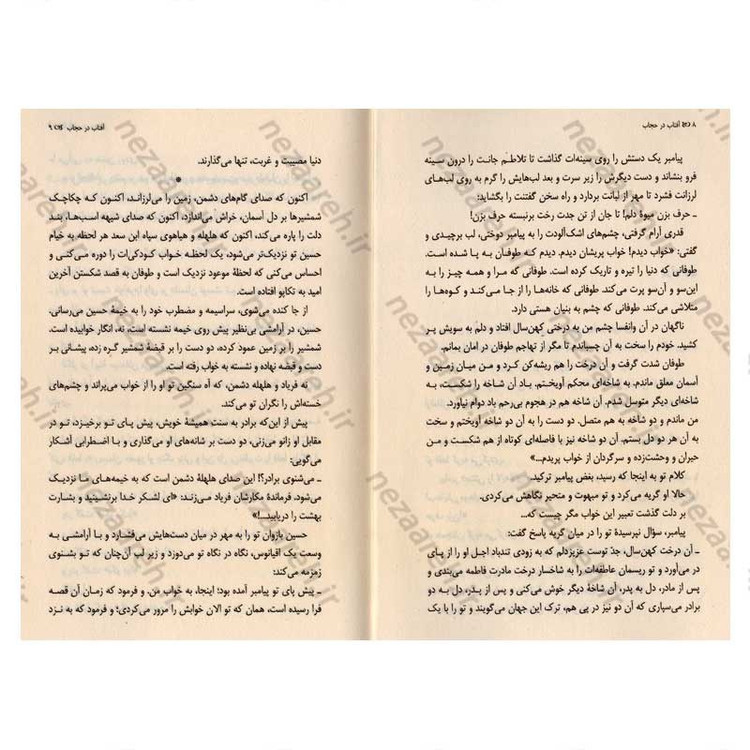 ۸ آفتاب در حجاب
پیامبر یک دستش را روی سینه‌ات گذاشت تا تلاطم جانت را درون سینه
فرو بنشاند و دست دیگرش را زیر سرت و بعد لب‌هایش را گرم به روی لب‌های
لرزانت فشرد تا مهر از لبانت بردارد و راه سخن گفتنت را بگشاید:
ـ حرف بزن میوهٔ دلم! تا جان از تن جدت رخت برنبسته حرف بزن!
قدری آرام گرفتی، چشم‌های اشک‌آلودت را به پیامبر دوختی، لب برچیدی و
گفتی: «خواب دیدم! خواب پریشان دیدم. دیدم که طوفان به پا شده است.
طوفانی که دنیا را تیره و تاریک کرده است. طوفانی که مرا و همه چیز را به
این‌سو و آن‌سو پرت می‌کند. طوفانی که خانه‌ها را از جا می‌کند و کوه‌ها را
متلاشی می‌کند. طوفانی که چشم به بنیان هستی دارد.
ناگهان در آن وانفسا چشم من به درختی کهن‌سال افتاد و دلم به سویش پر
کشید. خودم را سخت به آن چسباندم تا مگر از تهاجم طوفان در امان بمانم.
طوفان شدت گرفت و آن درخت را هم ریشه‌کن کرد و من میان زمین و
آسمان معلق ماندم. به شاخه‌ای محکم آویختم. باد آن شاخه را شکست، به
شاخه‌ای دیگر متوسل شدم. آن شاخه هم در هجوم بی‌رحم باد دوام نیاورد.
من ماندم و دو شاخه به هم متصل. دو دست را به آن دو شاخه آویختم و سخت
به آن هر دو دل بستم. آن دو شاخه نیز با فاصله‌ای کوتاه از هم شکست و من
حیران و وحشت‌زده و سرگردان از خواب پریدم...»
کلام تو به اینجا که رسید، بغض پیامبر ترکید.
حالا او گریه می‌کرد و تو مبهوت و متحیر نگاهش می‌کردی.
بر دلت گذشت تعبیر این خواب مگر چیست که...
پیامبر، سؤال نپرسیدهٔ تو را در میان گریه پاسخ گفت:
ـ آن درخت کهن‌سال، جدّ توست عزیزدلم که به زودی تندباد اجل او را از پای
در می‌آورد و تو ریسمان عاطفه‌ات را به شاخسار درخت مادرت فاطمه می‌بندی و
پس از مادر، دل به پدر، آن شاخهٔ دیگر خوش می‌کنی و پس از پدر، دل به دو
برادر می‌سپاری که آن دو نیز در پی هم، ترک این جهان می‌گویند و تو را با یک
آفتاب در حجاب ۹
دنیا مصیبت و غربت، تنها می‌گذارند.
●
اکنون که صدای گام‌های دشمن، زمین را می‌لرزاند، اکنون که چکاچک
شمشیرها بر دل آسمان، خراش می‌اندازد، اکنون که صدای شیهه اسب‌ها، بند
دلت را پاره می‌کند، اکنون که هلهله و هیاهوی سپاه ابن سعد هر لحظه به خیام
حسین تو نزدیک‌تر می‌شود، یک لحظه خواب کودکی‌ات را دوره می‌کنی و
احساس می‌کنی که لحظهٔ موعود نزدیک است و طوفان به قصد شکستن آخرین
امید به تکاپو افتاده است.
از جا کنده می‌شوی، سراسیمه و مضطرب خود را به خیمهٔ حسین می‌رسانی.
حسین، در آرامشی بی‌نظیر پیش روی خیمه نشسته است، نه، انگار خوابیده است.
شمشیر را بر زمین عمود کرده، دو دست را بر قبضهٔ شمشیر گره زده، پیشانی بر
دست و قبضه نهاده و نشسته به خواب رفته است.
نه فریاد و هلهله دشمن، که آه سنگین تو او را از خواب می‌پراند و چشم‌های
خسته‌اش را نگران تو می‌کند.
پیش از این‌که برادر به سنت همیشهٔ خویش، پیش پای تو برخیزد، تو در
مقابل او زانو می‌زنی، دو دست بر شانه‌های او می‌گذاری و با اضطرابی آشکار
می‌گویی:
ـ می‌شنوی برادر؟! این صدای هلهلهٔ دشمن است که به خیمه‌های ما نزدیک
می‌شود. فرماندهٔ مکارشان فریاد می‌زند: «ای لشکر خدا برنشینید و بشارت
بهشت را دریابید...!»
حسین بازوان تو را به مهر در میان دست‌هایش می‌فشارد و با آرامشی به
وسعت یک اقیانوس، نگاه در نگاه تو می‌دوزد و زیر لب آن‌چنان که تو بشنوی
زمزمه می‌کند:
ـ پیش پای تو پیامبر آمده بود؛ اینجا، به خواب من. و فرمود که زمان آن قصه
فرا رسیده است، همان که تو الان خوابش را مرور می‌کردی؛ و فرمود که به نزد
nezaareh.ir